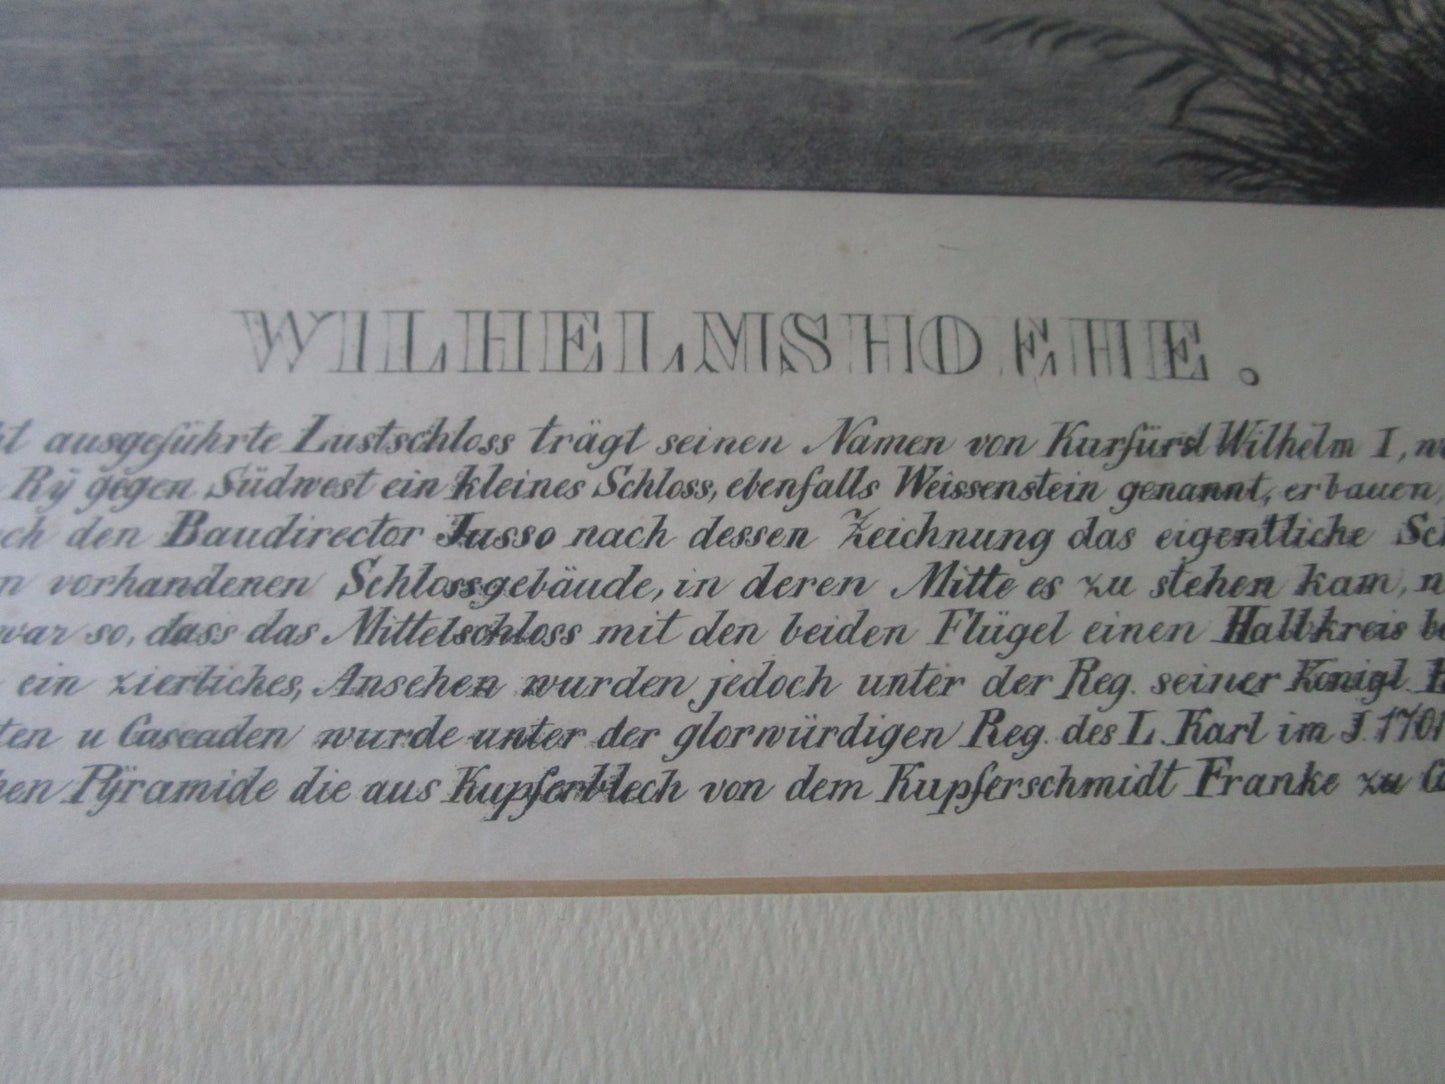 WILHELMSHOEHE.
ausgeführte Lustschloss trägt seinen Namen von Kurfürst Wilhelm I,
Ry gegen Südwest ein kleines Schloss, ebenfalls Weissenstein genannt, erbauen,
den Baudirector Jusso nach dessen Zeichnung das eigentliche
vorhandenen Schlossgebäude, in deren Mitte es zu stehen kam,
so, dass das Mittelschloss mit den beiden Flügel einen Halbkreis
ein zierliches, Ansehen wurden jedoch unter der Reg. seiner Königl
u Cascaden wurde unter der glorwürdigen Reg. des L. Karl im J. 1701
Pÿramide die aus Kupferblech von dem Kupferschmidt Franke zu